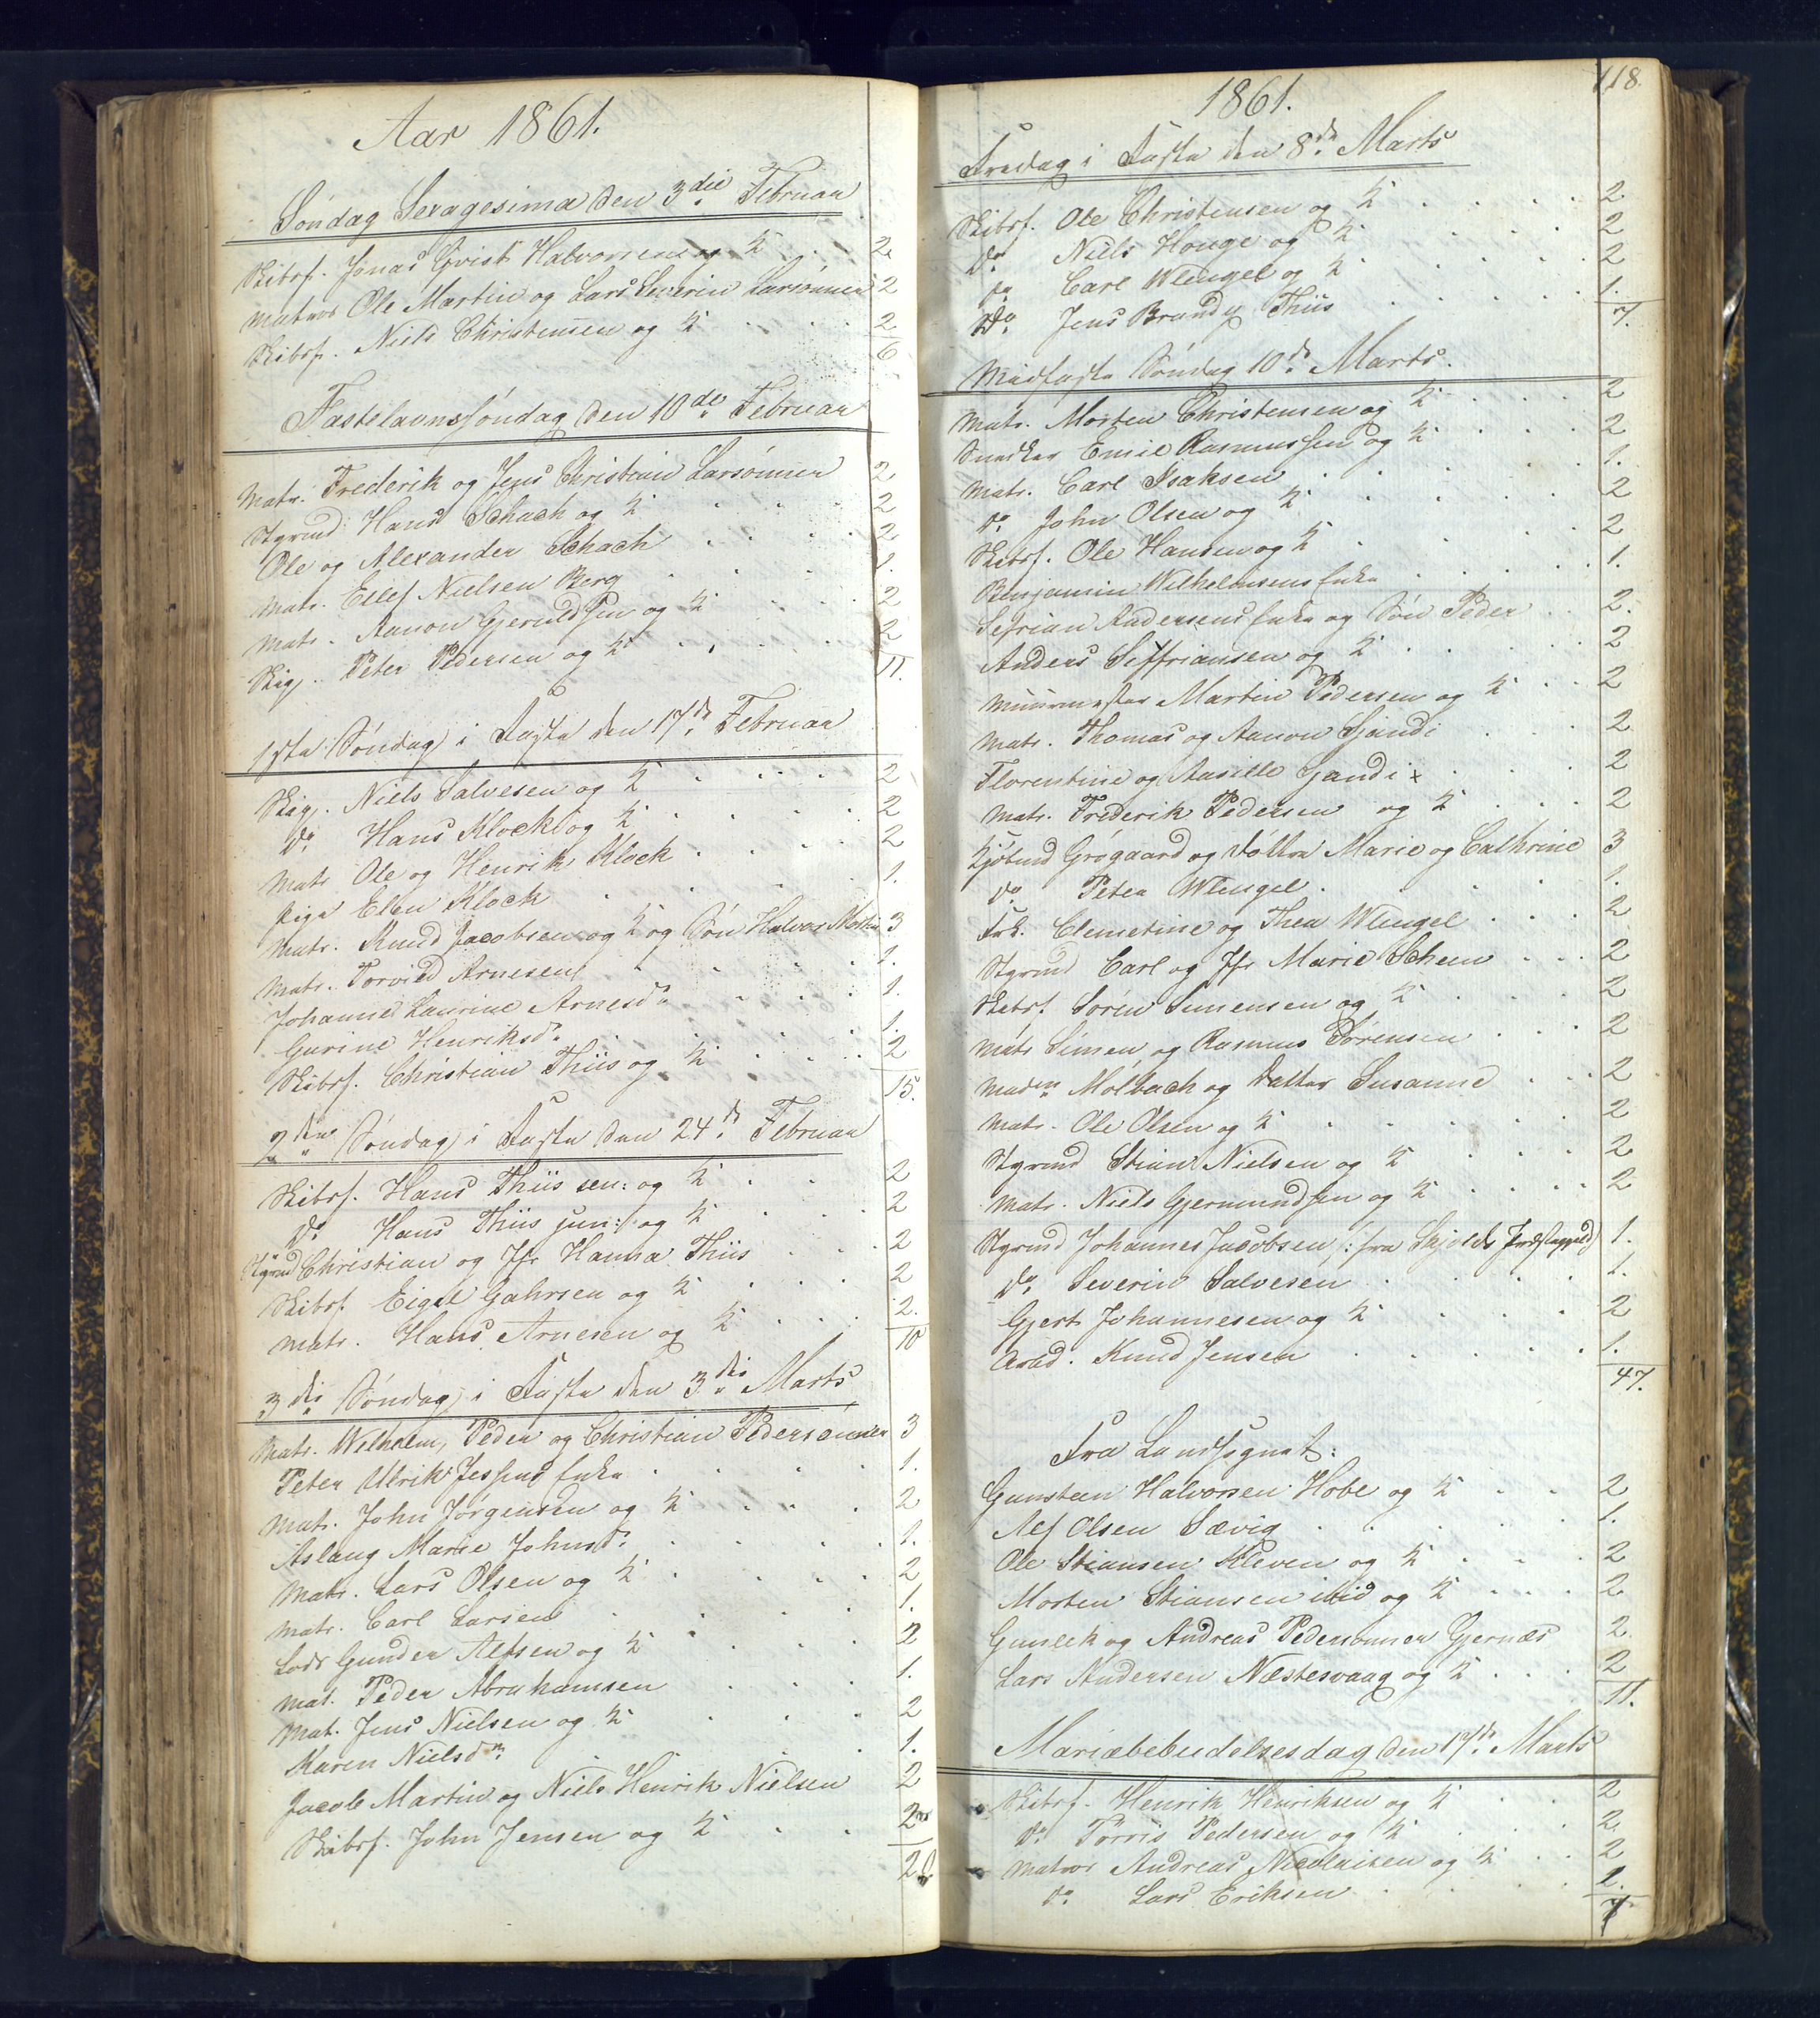 Aar 1861.
Søndag Sexagesima den 3die Februar
Skibsf. Jonas Qvist Halvorsen og K 2
Matros Ole Martin og Lars Severin Larsønner 2
Skibsf. Niels Christensen og K 2
6
Fastelavnssøndag den 10de Februar
Matr. Frederik og Jens Christian Larsønner 2
Styrmd Hans Schach og K 2
Ole og Alexander Schach 2
Matr. Ellef Nielsen Berg 1.
Matr. Aanon Gjeruldsen og K 2
Skip. Peter Pedersen og K 2
11.
1ste Søndag i Faste den 17de Februar
Skip. Niels Salvesen og K 2
Do Hans Klock og K 2
Matr Ole og Henrik Klock 2
Pige Elen Klock 1.
Matr. Knud Jacobsen og K og Søn Halvor Martin 3
Matr. Torvild Arnesen 1.
Johanne Laurine Arnesd. 1.
Gurine Henriksd. 1.
Skibsf. Christian Thiis og K 2
15.
2den Søndag i Faste den 24de Februar
Skibsf. Hans Thiis sen: og K 2
Do Hans Thiis jun: og K 2
Styrmd Christian og Jfr Hanna Thiis 2
Skibsf. Eigel Gahrsen og K 2
Matr. Hans Arnesen og K 2.
10
3die Søndag i Faste den 3die Marts
Matr. Wilhelm, Peder og Christian Pedersønner 3
Peter Ulrik Jessens Enke 1.
Matr. John Jørgensen og K 2
Aslaug Marie Johnsd. 1.
Matr. Lars Olsen og K 2
Matr. Carl Larsen 1.
Lods Gunder Alfsen og K 2
Mat. Peder Abrahamsen 1.
Mat. Jens Nielsen og K 2
Karen Nielsdr. 1.
Jacob Martin og Niels Henrik Nielsen 2
Skibsf. John Jensen og K 2
118.
1861.
Fredag i Faste den 8de Marts
Skibsf. Ole Christensen og K 2
Do Niels Houge og K 2
Do Carl Wengel og K 2
Do Jens Brandy Thiis 1.
7.
Midfaste Søndag 10de Marts.
Matr. Morten Christensen og K 2
Snedker Emil Rasmussen og K 2
Matr. Carl Isaksen 1.
Do John Olsen og K 2
Skibsf. Ole Hansen og K 2
Benjamin Wilhelmsens Enke 1.
Sefrian Andersens Enke og Søn Peder 2.
Anders Seffriansen og K 2
Muurmester Martin Pedersen og K 2
Matr. Thomas og Aanon Gjandi 2
Florentine og Aasille Gandi x 2
Matr. Frederik Pedersen og K 2
Kjøbmd Grøgaard og Døttre Marie og Cathrine 3
Do Peter Wengel. 1.
Frk. Clemetine og Thea Wengel 2
Styrmd Carl og Jfr Marie Scheen 2
Skibsf. Søren Simensen og K 2
Matr Simen og Rasmus Sørensen 2
Madm Mølbach og Datter Susanne 2
Matr. Ole Olsen og K 2
Styrmd Stian Nielsen og K 2
Matr. Niels Gjermundsen og K 2
Styrmd Johannes Jacobsen /: fra Skjolds Præstegjeld) 1.
Do Severin Salvesen 1.
Gjert Johannesen og K 2
Arbd. Knud Jensen 1.
47.
Fra Landsognet:
Gunsteen Halvorsen Hobe og K 2
Alf Olsen Sævig 1.
Ole Stiansen Kleven og K 2
Morten Stiansen ibid og K 2
Gunlek og Andreas Pedersønner Gjernæs 2.
Lars Andersen Næstesvaag og K 2
11.
Mariæbebudelsesdag den 17de Marts
Skibsf. Henrik Henriksen og K 2
Do Torris Pedersen og K 2.
Matros Andreas Nicolaisen og K 2
Do Lars Eriksen 1.
7